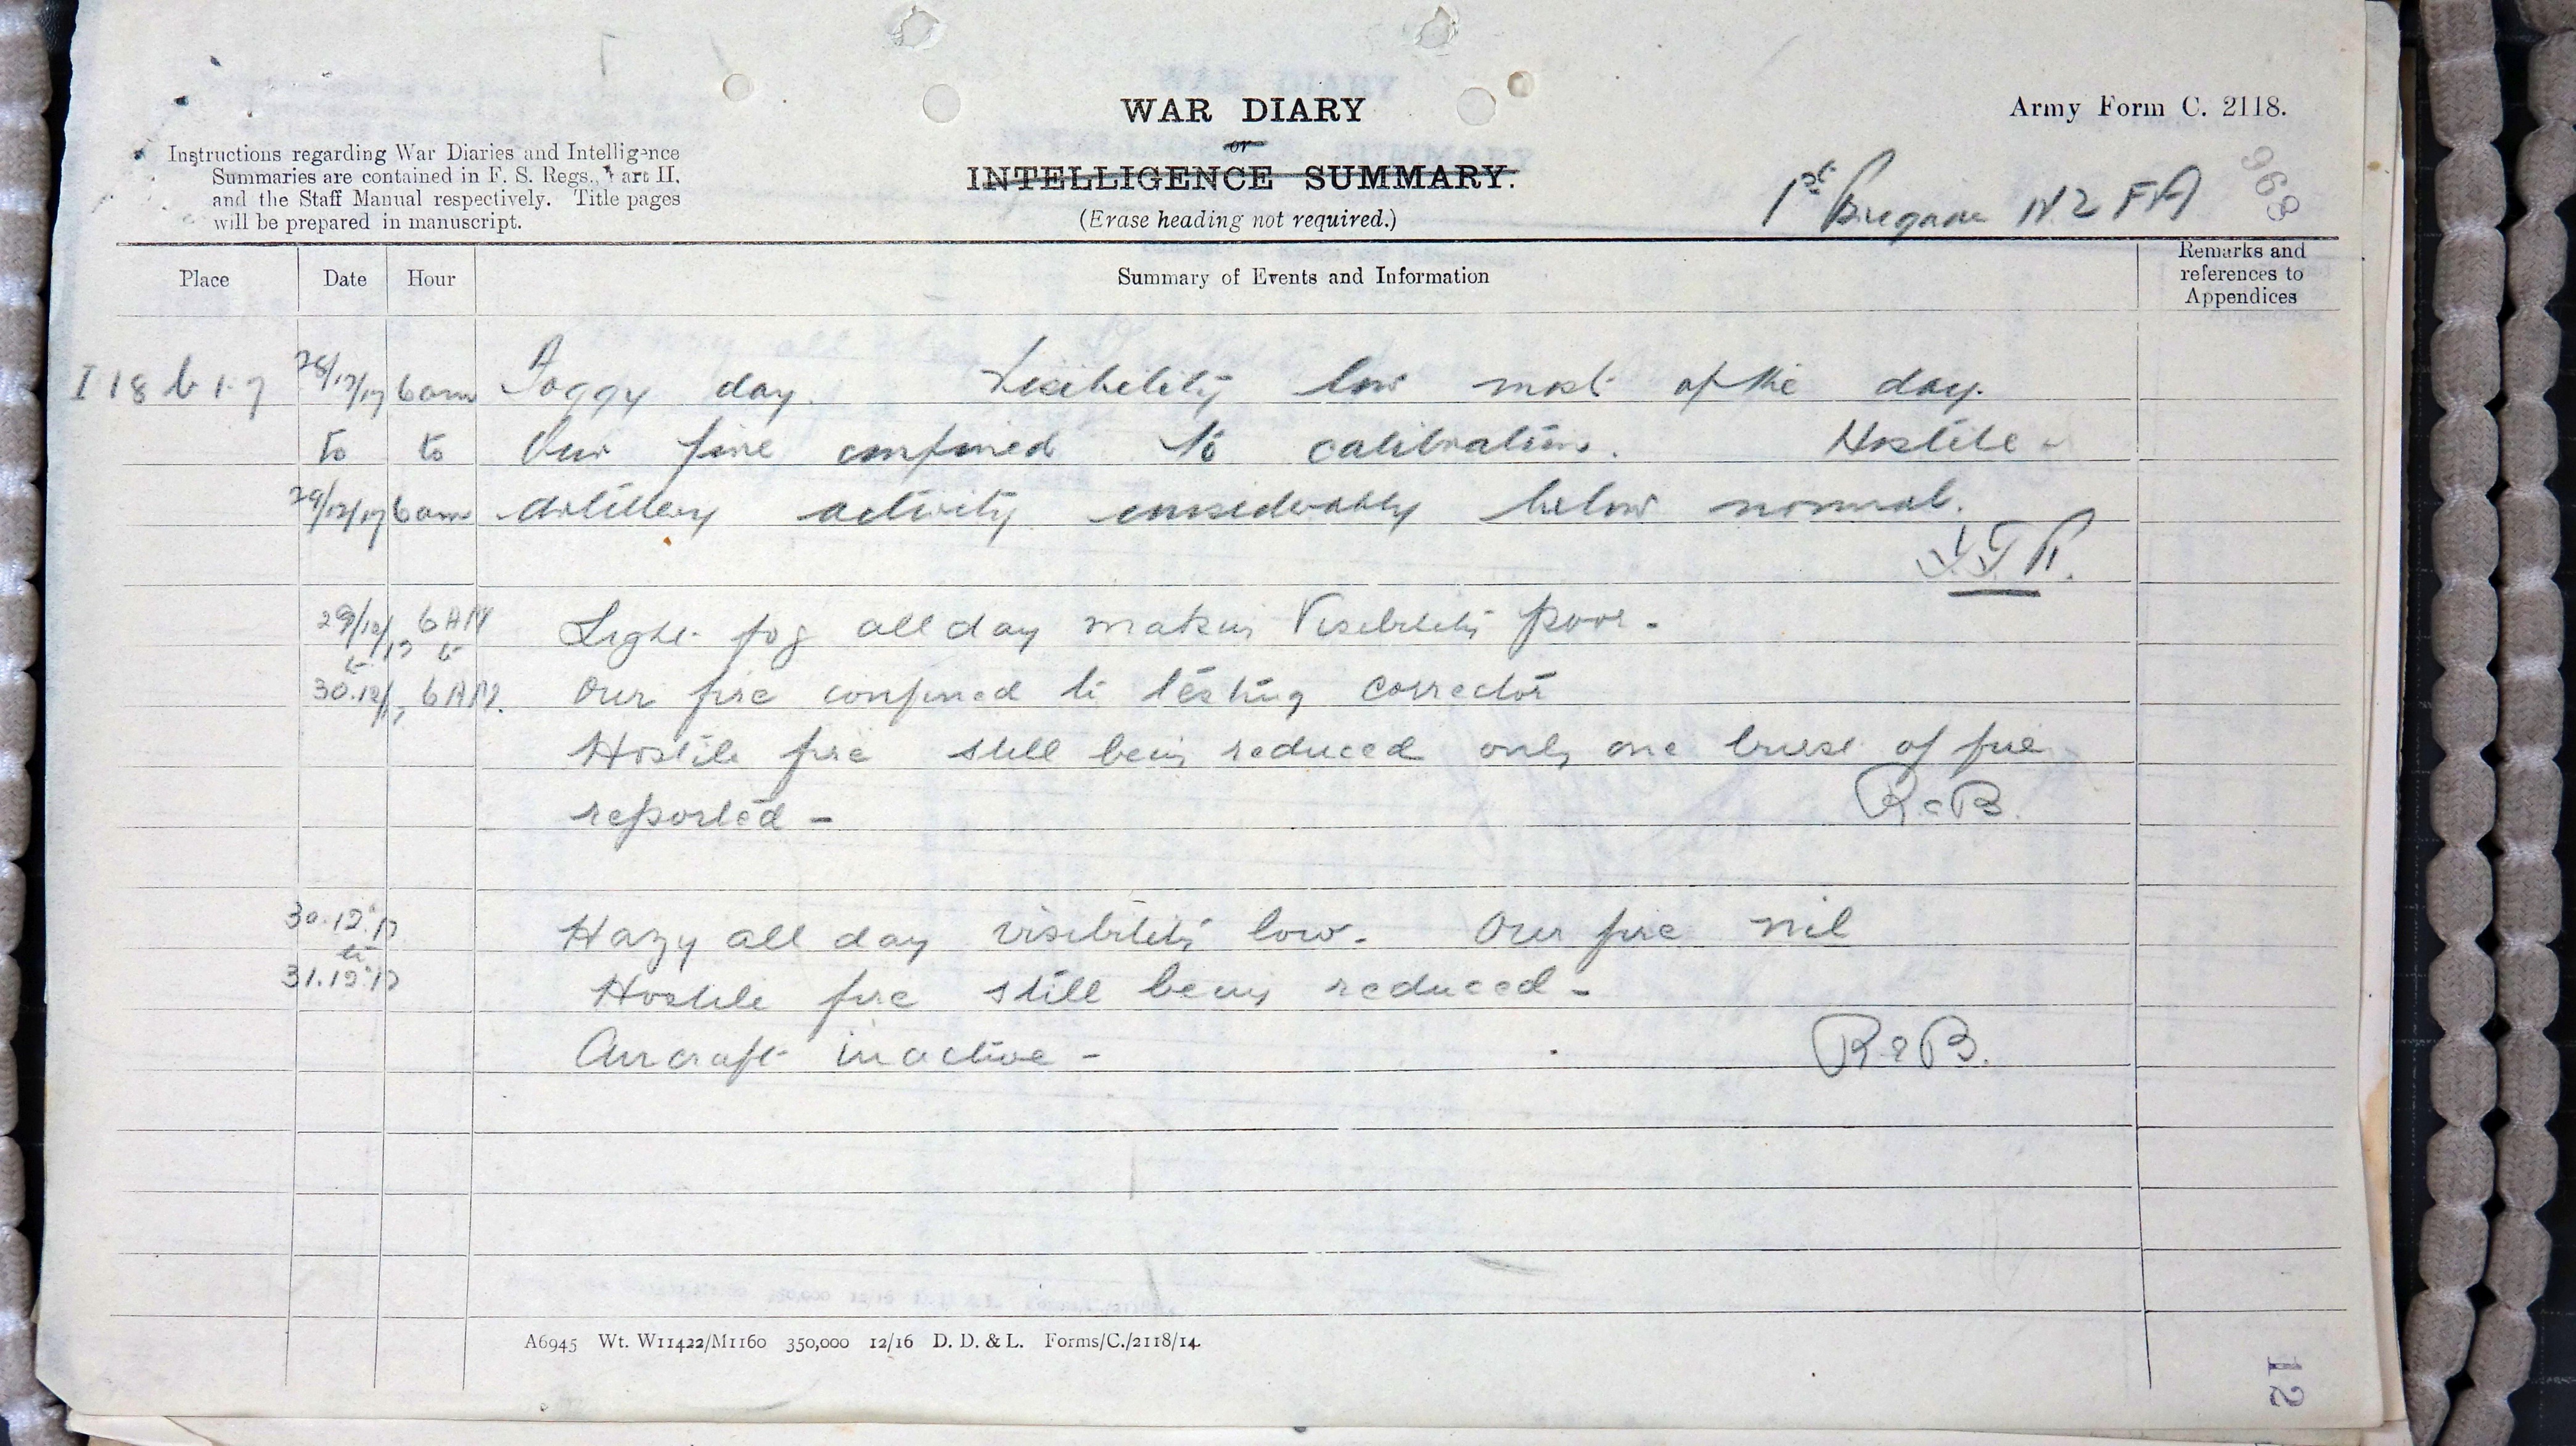 WAR DIARY
or
INTELLIGENCE SUMMARY.
(Erase heading not required.)
Army Form C. 2118.
Instructions regarding War Diaries and Intelligence
Summaries are contained in F. S. Regs., Part II.
and the Staff Manual respectively. Title pages
will be prepared in manuscript.
1st Brigade NZFA
968
Place Date Hour Summary of Events and Information Remarks and
references to
Appendices
I 18 b 1.7 28/12/17 6am Foggy day. Visibility low most of the day.
to to Our fire confined to calibration. Hostile
29/12/17 6am artillery activity considerably below normal.
29/12/17 6AM Light fog all day making Visibility poor.
to to
30.12/17 6AM. Our fire confined to testing corrector
Hostile fire still being reduced only one burst of fire
reported -
R.B.
30.12.17 Hazy all day visibility low. Our fire nil
to
31.12.17 Hostile fire still being reduced -
Aircraft inactive -
R.B.
A6945 Wt. W11422/M1160 350,000 12/16 D. D. & L. Forms/C./2118/14.
12